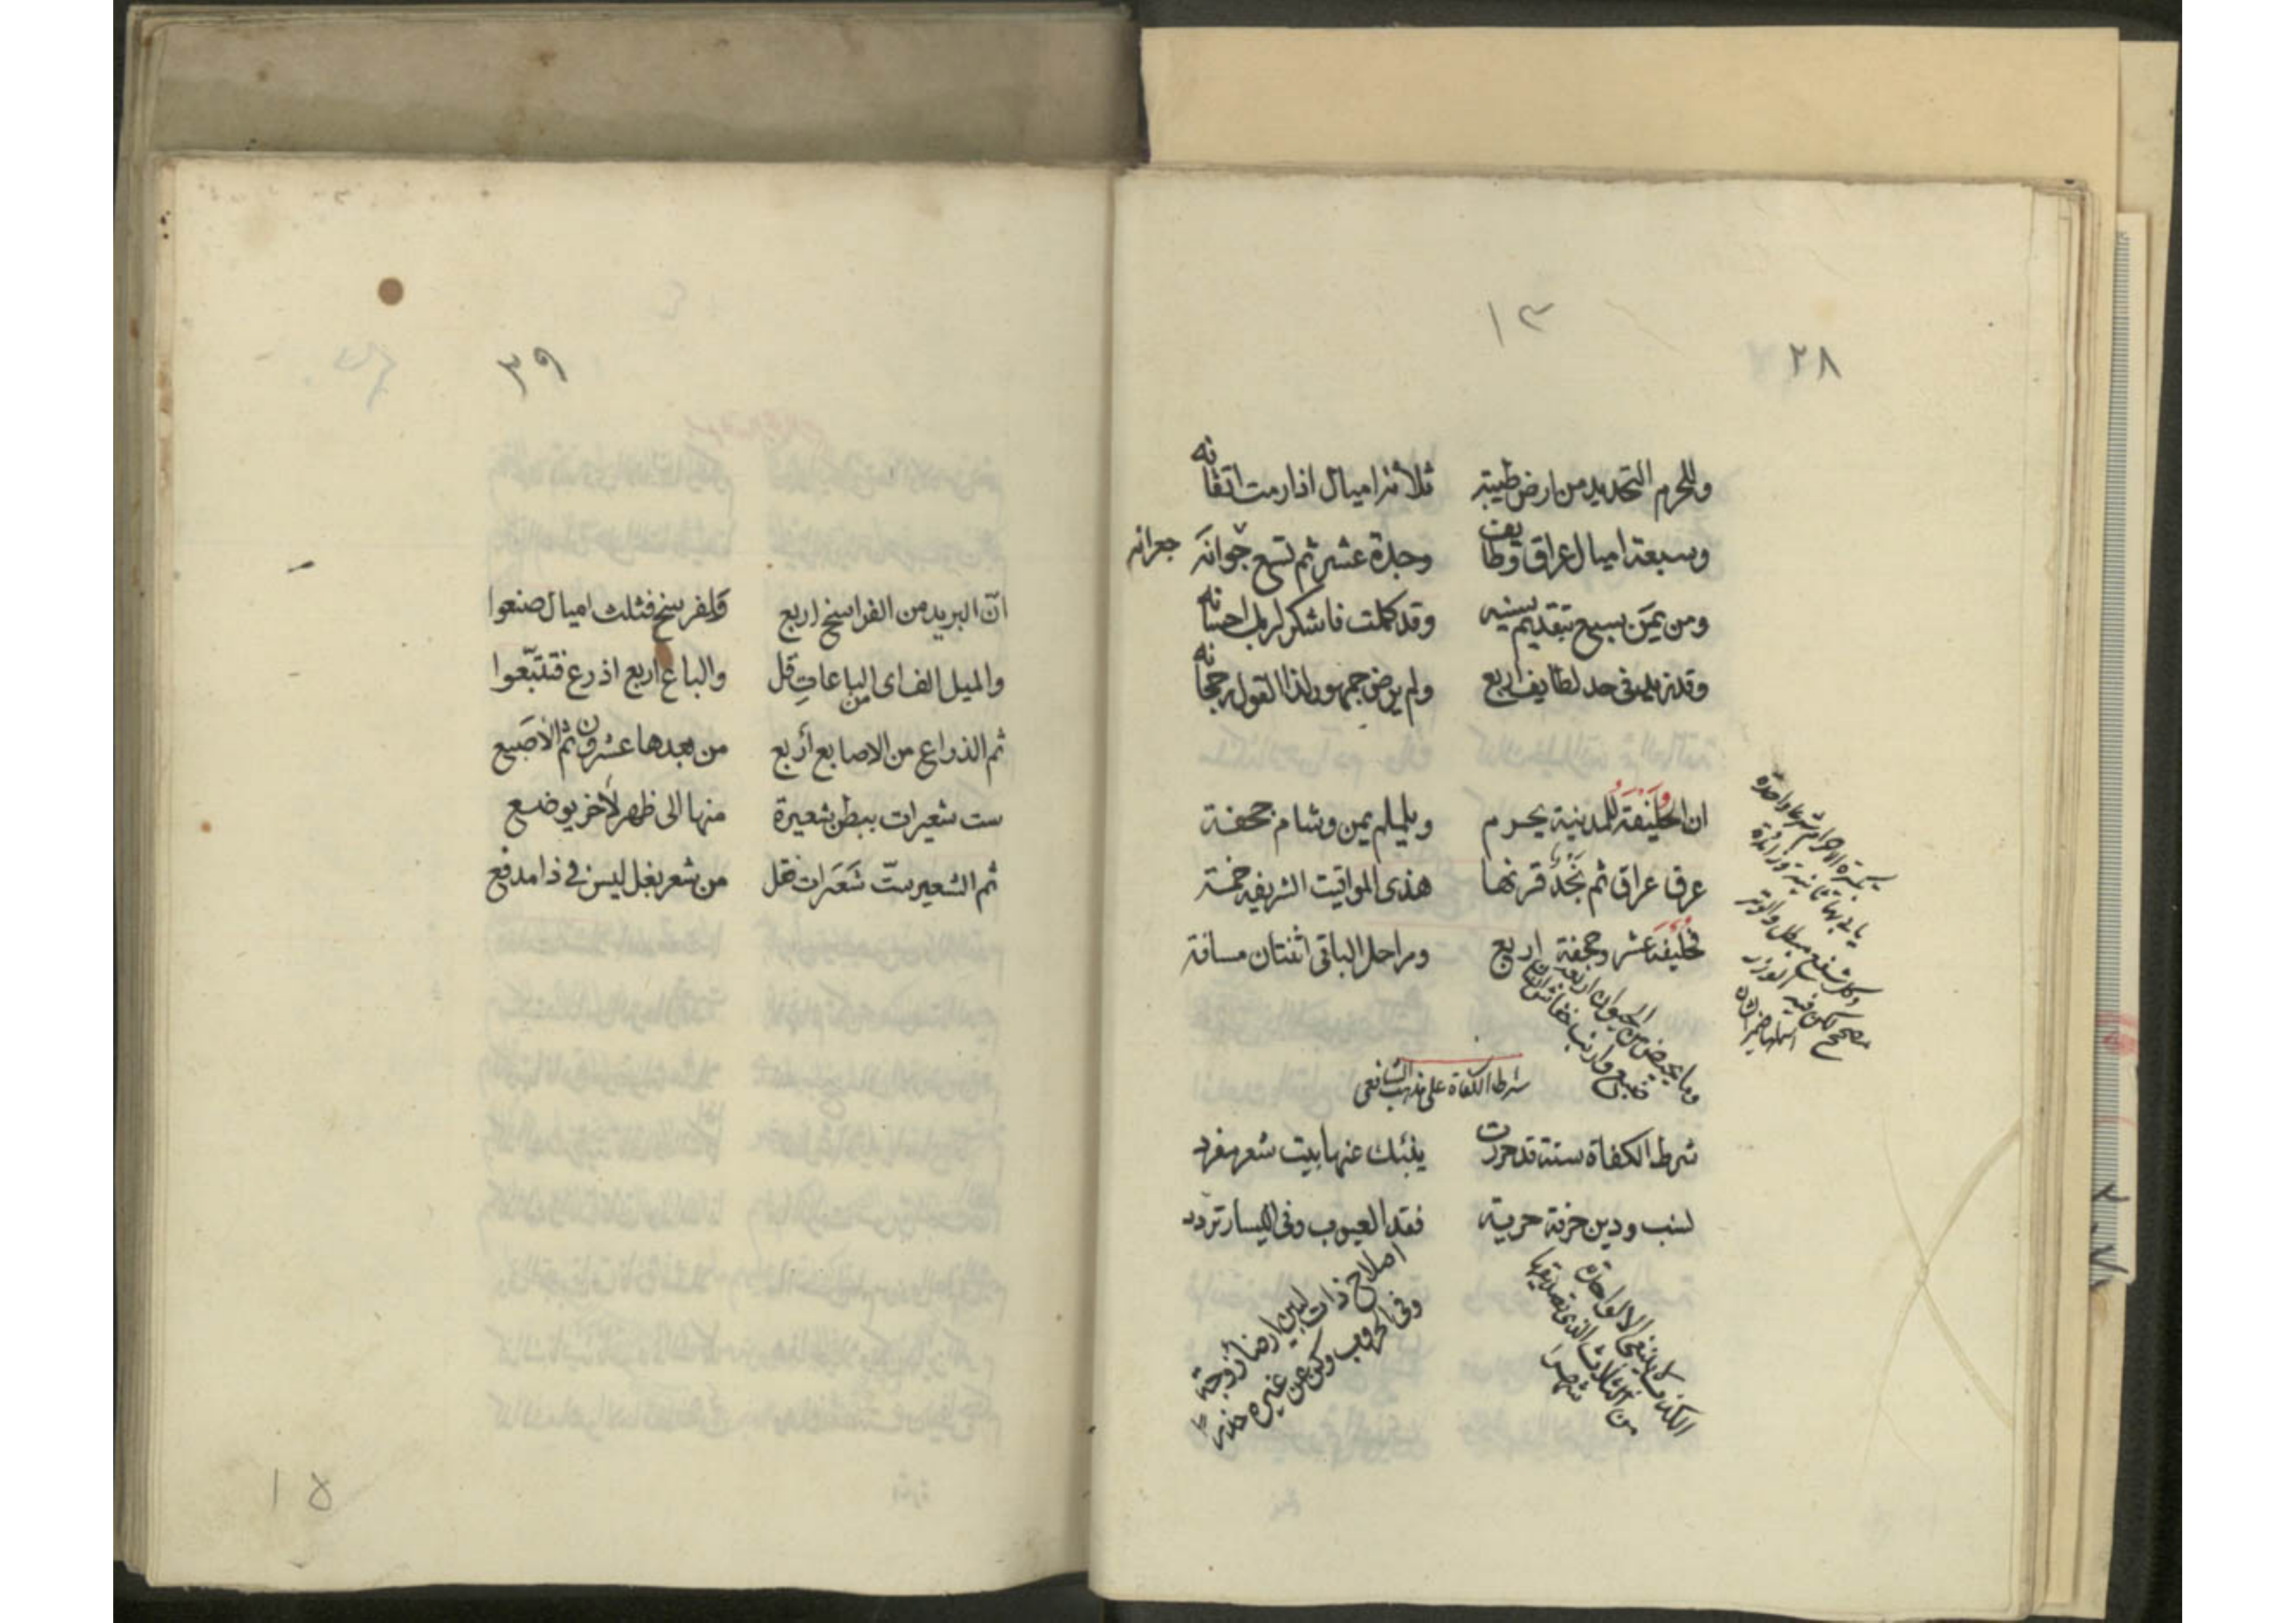 ١٣
٢٨
وللحرم التحديد من ارض طيبة ثلاثة اميال اذا رمت اتقانه
وسبعة اميال عراق وطايف وجدة عشر ثم تسع جعرانه
جعرانه
ومن يمن سبع بتقديم سينه وقد كملت فاشكر لربك احسانه
وقد زيد في حد لطايف اربع ولم يرض جمهور لذا القول رجحانه
ان الحليفة للمدينة يحرم ويلملم يمن وشام جحفة
عرق عراق ثم نجد قرنها هذى المواقيت الشريفة خمسة
فحليفة عشر وجحفة اربع ومراحل الباقى اثنتان مسافة
تكبيرة الاحرام شرعا واحدة
يا ذا بها ثانية وزائدة
وكل شفع مبطل والوتر
مصحح لكن فيه الوزر
وما يحيض من الحيوان اربعة
ضبع وارنب خفاش
شرط الكفاة على مذهب الشافعى
شرط الكفاة ستة قد حررت ينبئك عنها بيت شعر مفرد
نسب ودين حرفة حرية فقد العيوب وفى اليسار تردد
الكذب لا ينبغى الا لواحدة
من الثلاث الذى
اصلاح ذات البين ارضا زوجة
وفى الحروب وكن عن غيره حذرا
٣٩
ان البريد من الفراسخ اربع ولفرسخ فثلث اميال صنعوا
والميل الف اى من الباعات قل والباع اربع اذرع فتتبعوا
ثم الذراع من الاصابع أربع من بعدها عشرون ثم الاصبع
ست شعيرات ببطن شعيرة منها الى ظهر لأخر يوضع
ثم الشعير ست شعرات فقل من شعر بغل ليس فى ذا مدفع
١٥